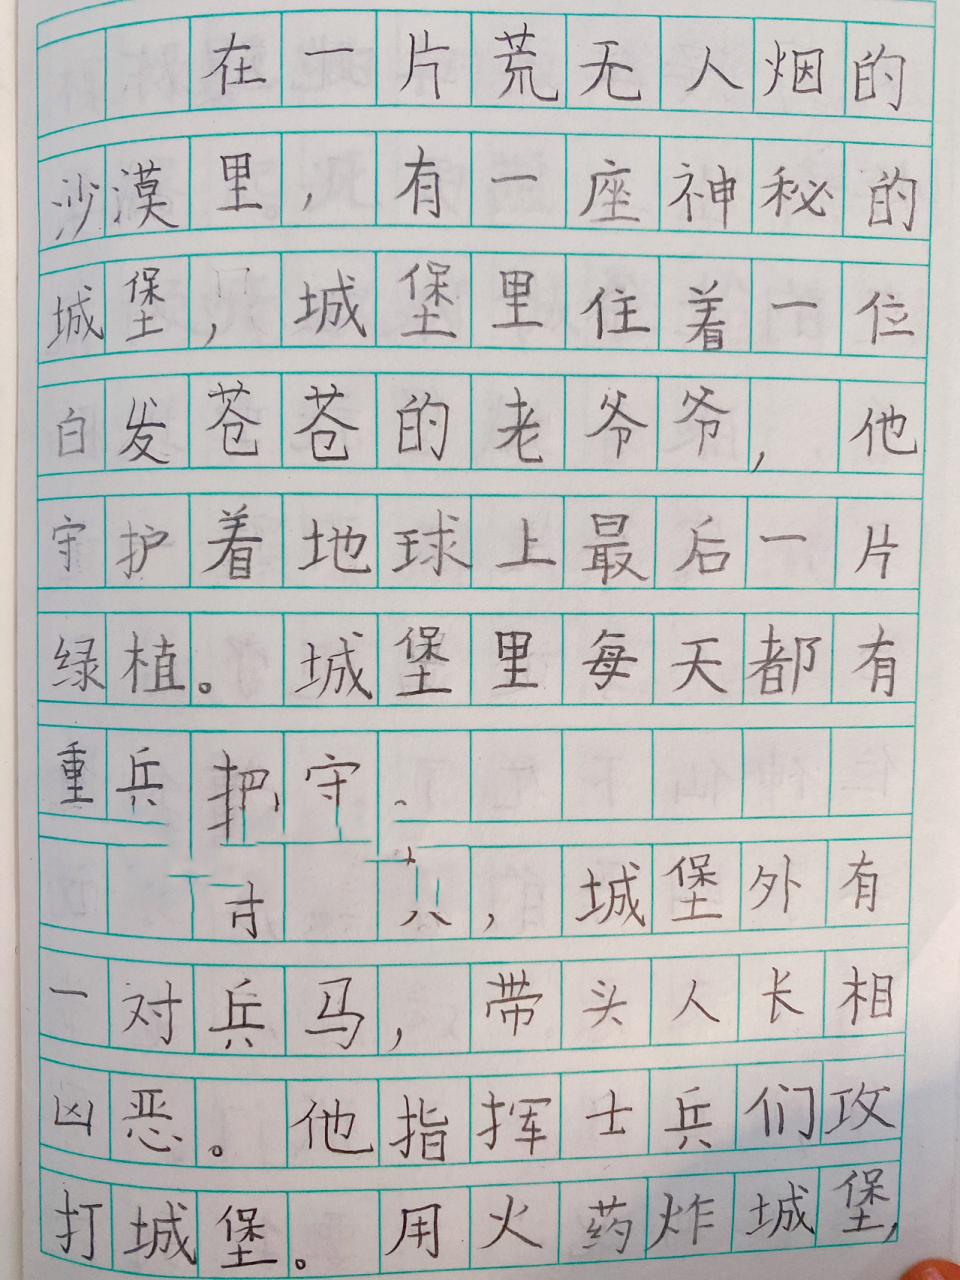 在一片荒无人烟的
沙漠里，有一座神秘的
城堡，城堡里住着一位
白发苍苍的老爷爷，他
守护着地球上最后一片
绿植。城堡里每天都有
重兵把守
，城堡外有
一对兵马，带头人长相
凶恶。他指挥士兵们攻
打城堡。用火药炸城堡，